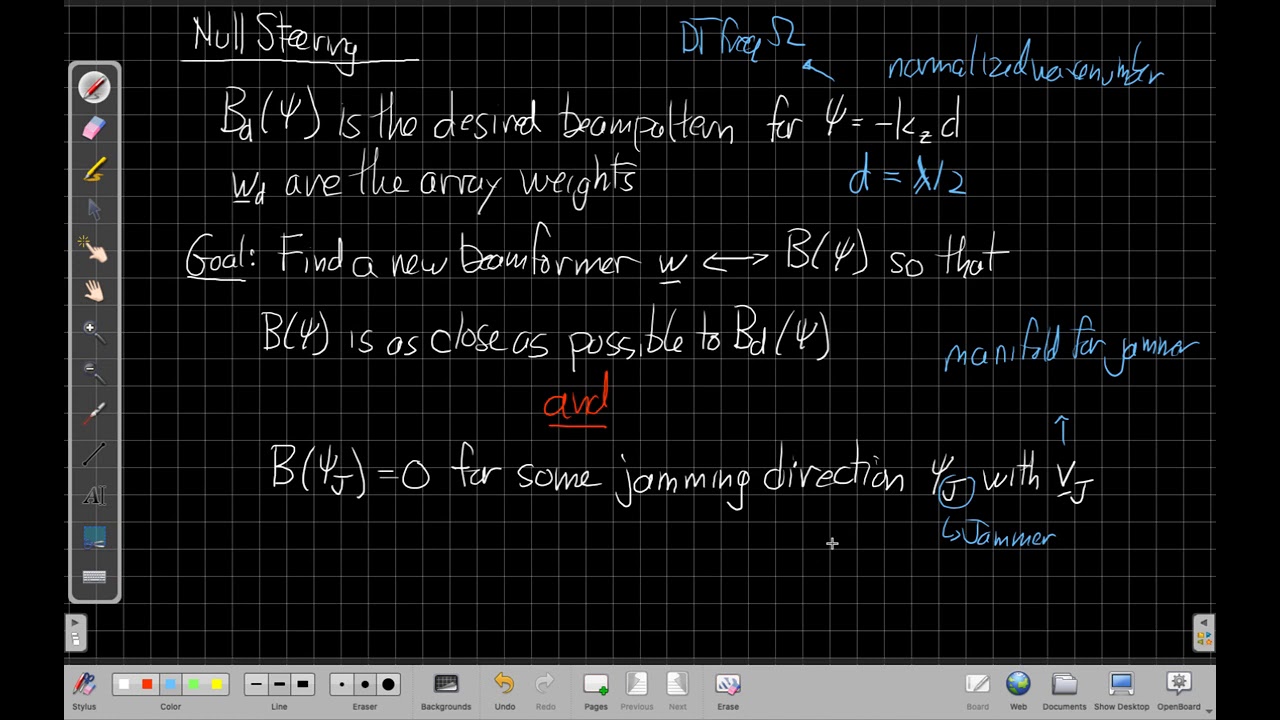 Null Steering
DT freq Ω
normalized wavenumber
B_d(Ψ) is the desired beampattern for Ψ = -k_z d
w_d are the array weights
d = λ/2
Goal: Find a new beamformer w ⟷ B(Ψ) so that
B(Ψ) is as close as possible to B_d(Ψ)
manifold for jammer
and
B(Ψ_J) = 0 for some jamming direction Ψ_J with v_J
↳ Jammer
Stylus
Color
Line
Eraser
Backgrounds
Undo
Redo
Pages
Previous
Next
Erase
Board
Web
Documents
Show Desktop
OpenBoard